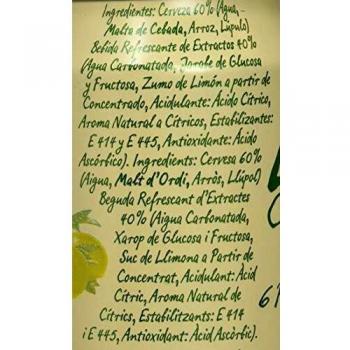 Ingredientes: Cerveza 60% (Agua,
Malta de Cebada, Arroz, Lúpulo)
Bebida Refrescante de Extractos 40%
(Agua Carbonatada, Jarabe de Glucosa
y Fructosa, Zumo de Limón a partir de
Concentrado, Acidulante: Ácido Cítrico,
Aroma Natural a Cítricos, Estabilizantes:
E 414 y E 445, Antioxidante: Ácido
Ascórbico). Ingredients: Cervesa 60%
(Aigua, Malt d'Ordi, Arròs, Llúpol)
Beguda Refrescant d'Extractes
40% (Aigua Carbonatada,
Xarop de Glucosa i Fructosa,
Suc de Llimona a Partir de
Concentrat, Acidulant: Àcid
Cítric, Aroma Natural de
Cítrics, Estabilitzants: E 414
i E 445, Antioxidant: Àcid Ascòrbic).